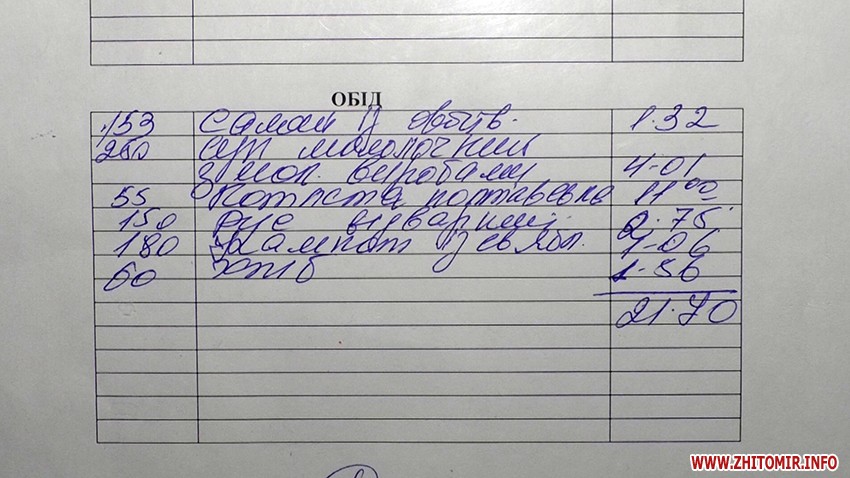 ОБІД
153 Салат із 1.32
250 суп молочний
виробами 4-01
55 Котлета полтавська 11.00
150 рис відварний 2.75
180 Компот із св ябл. 1-06
60 хліб 1-56
21.70
WWW.ZHITOMIR.INFO